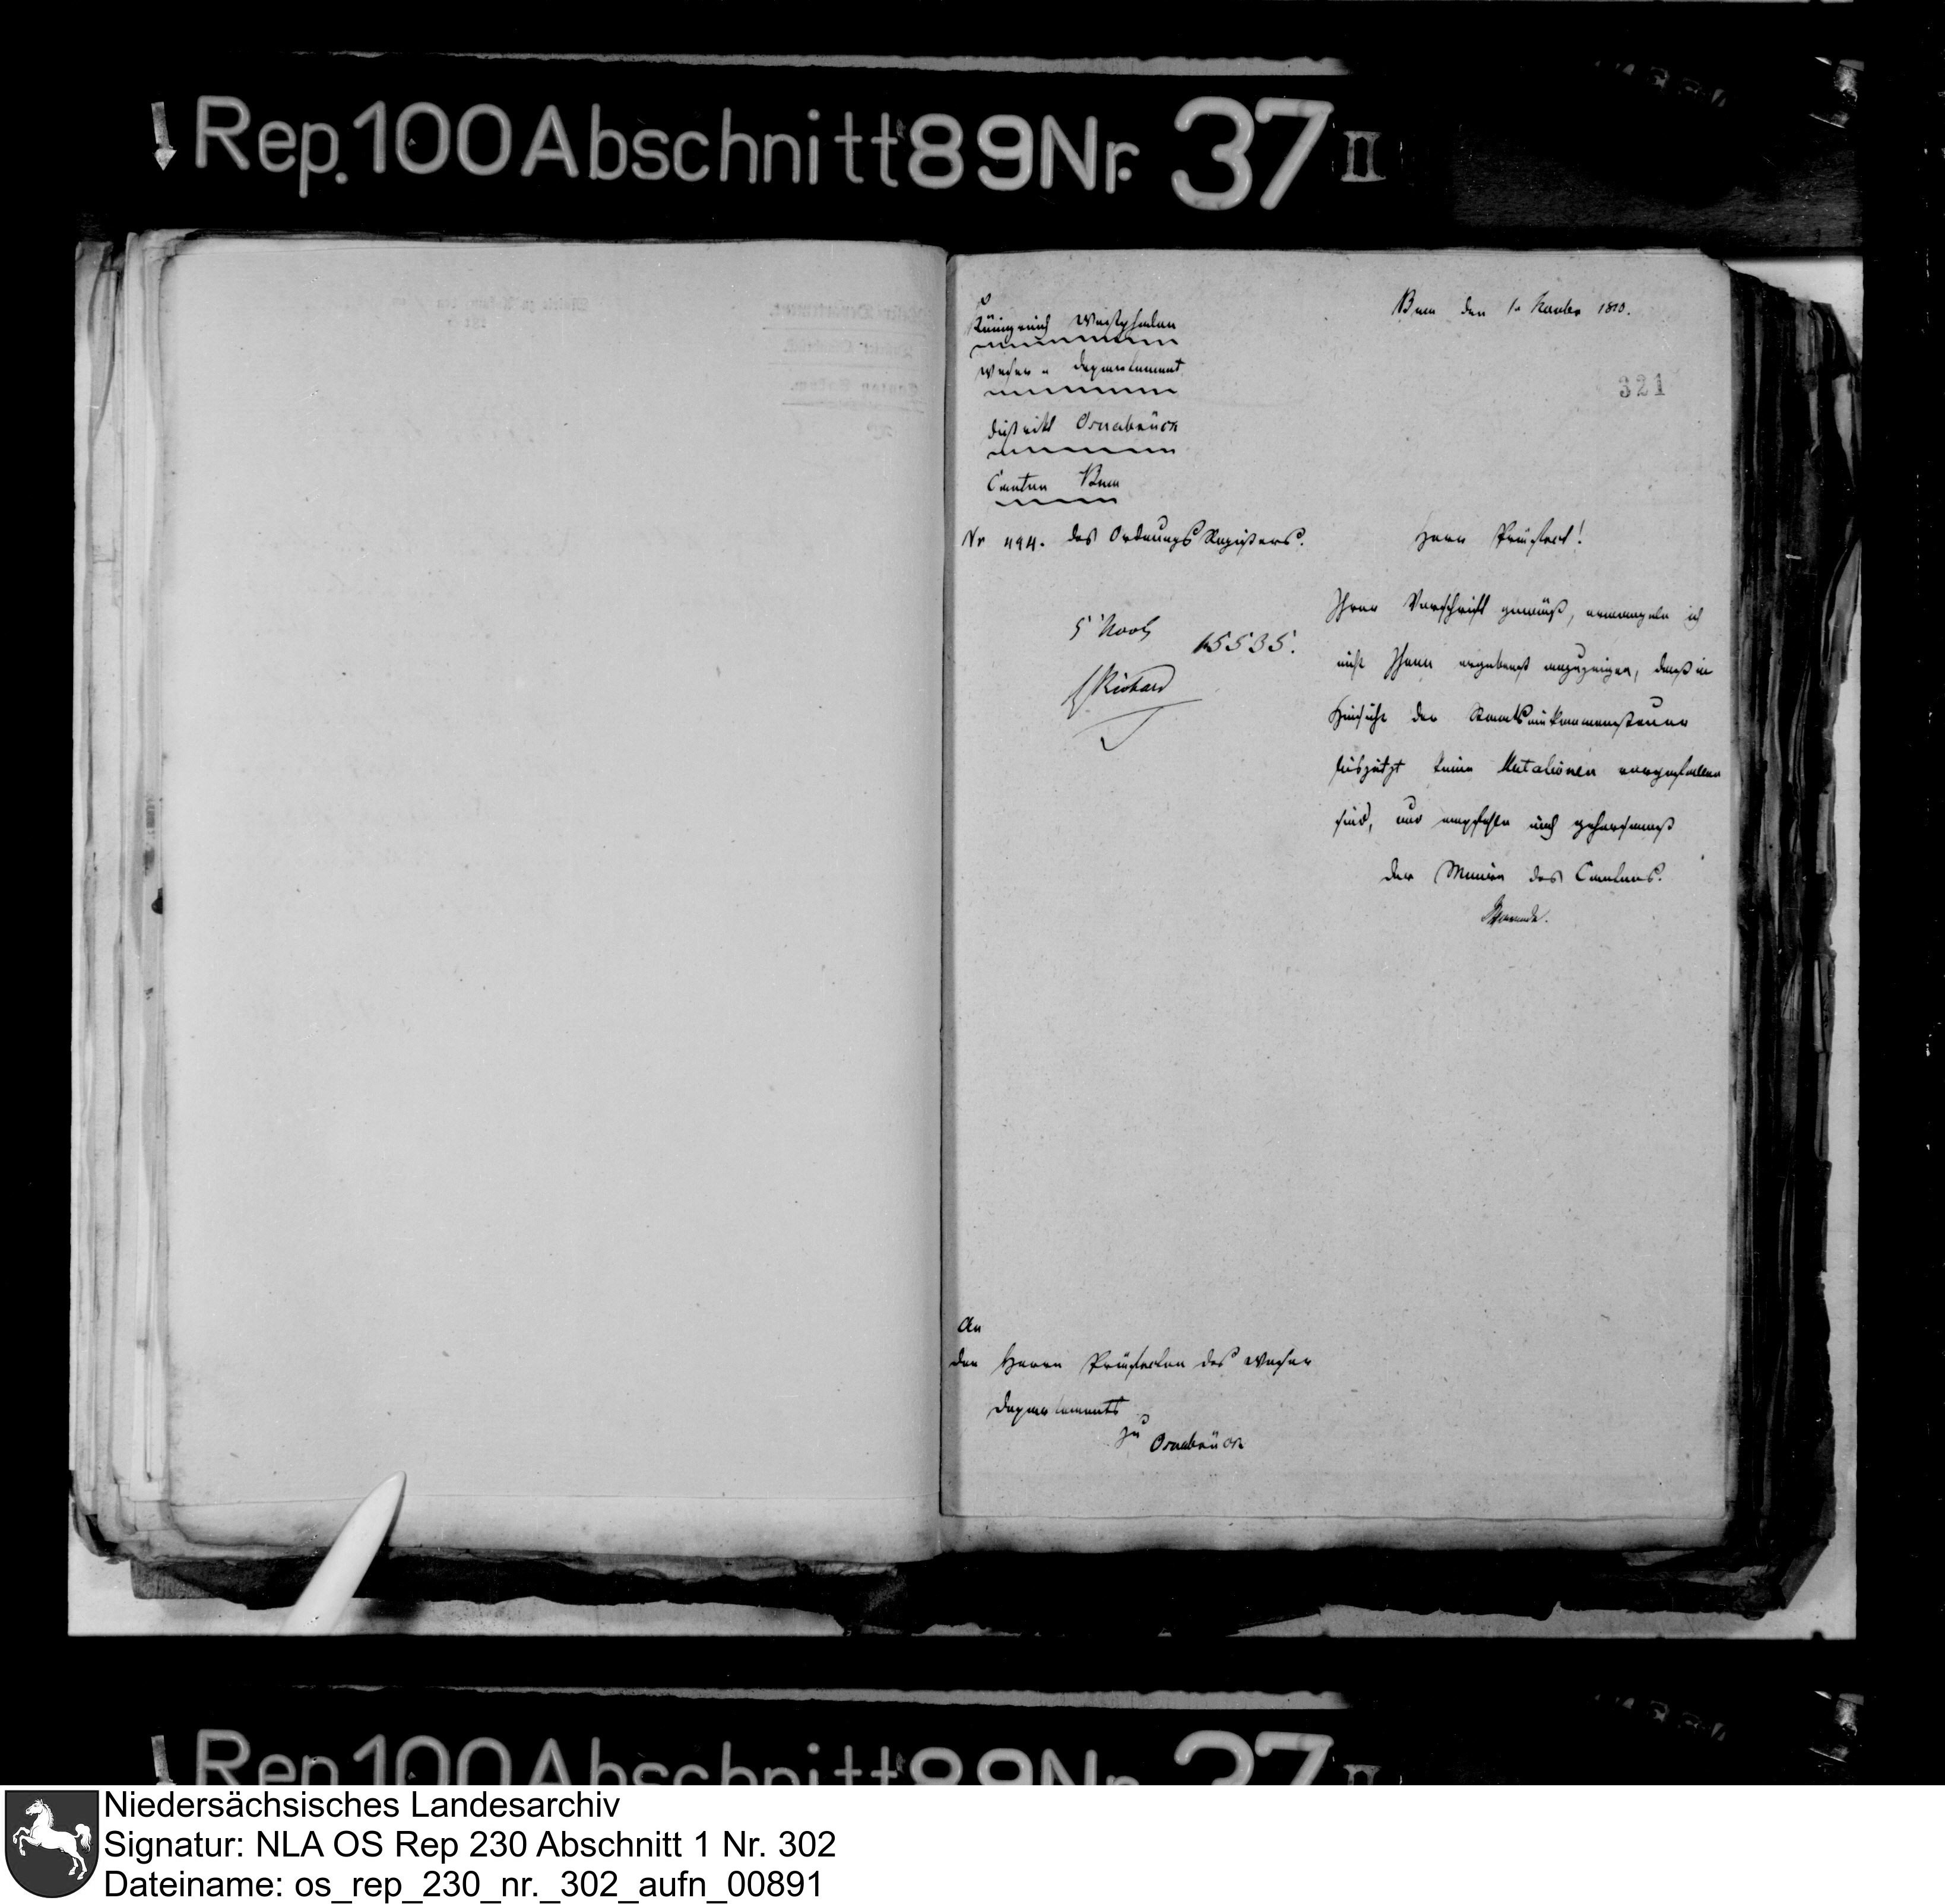 Rep. 100 Abschnitt 89 Nr. 37 II
Königreich Westphalen
Weser-Departement
District Osnabrück
Canton Buer
Nr 494. des Ordnungs Registers.
5 Novb 15535.
Richard
Buer den 1n November 1810.
321
Herr Präfect!
Ihrer Vorschrift gemäß, ermangele ich
nicht Ihnen ergebenst anzuzeigen, daß in
Hinsicht der Staatseinkommensteuer
bisjetzt keine Mutationen vorgefallen
sind, und empfehle mich gehorsamst
Der Maire des Cantons.
An
den Herrn Präfecten des Weser
Departements
zu Osnabrück
Rep. 100 Abschnitt 89 Nr. 37 II
Niedersächsisches Landesarchiv
Signatur: NLA OS Rep 230 Abschnitt 1 Nr. 302
Dateiname: os_rep_230_nr._302_aufn_00891